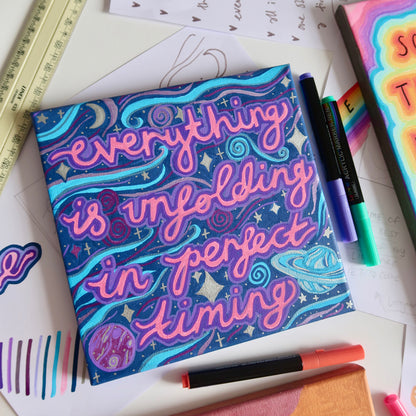 everything
is unfolding
in perfect
timing